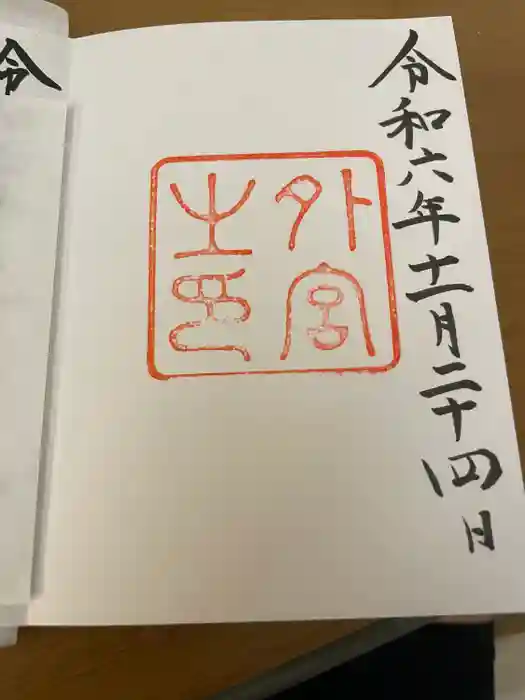 令和六年十一月二十四日
外宮之印
令